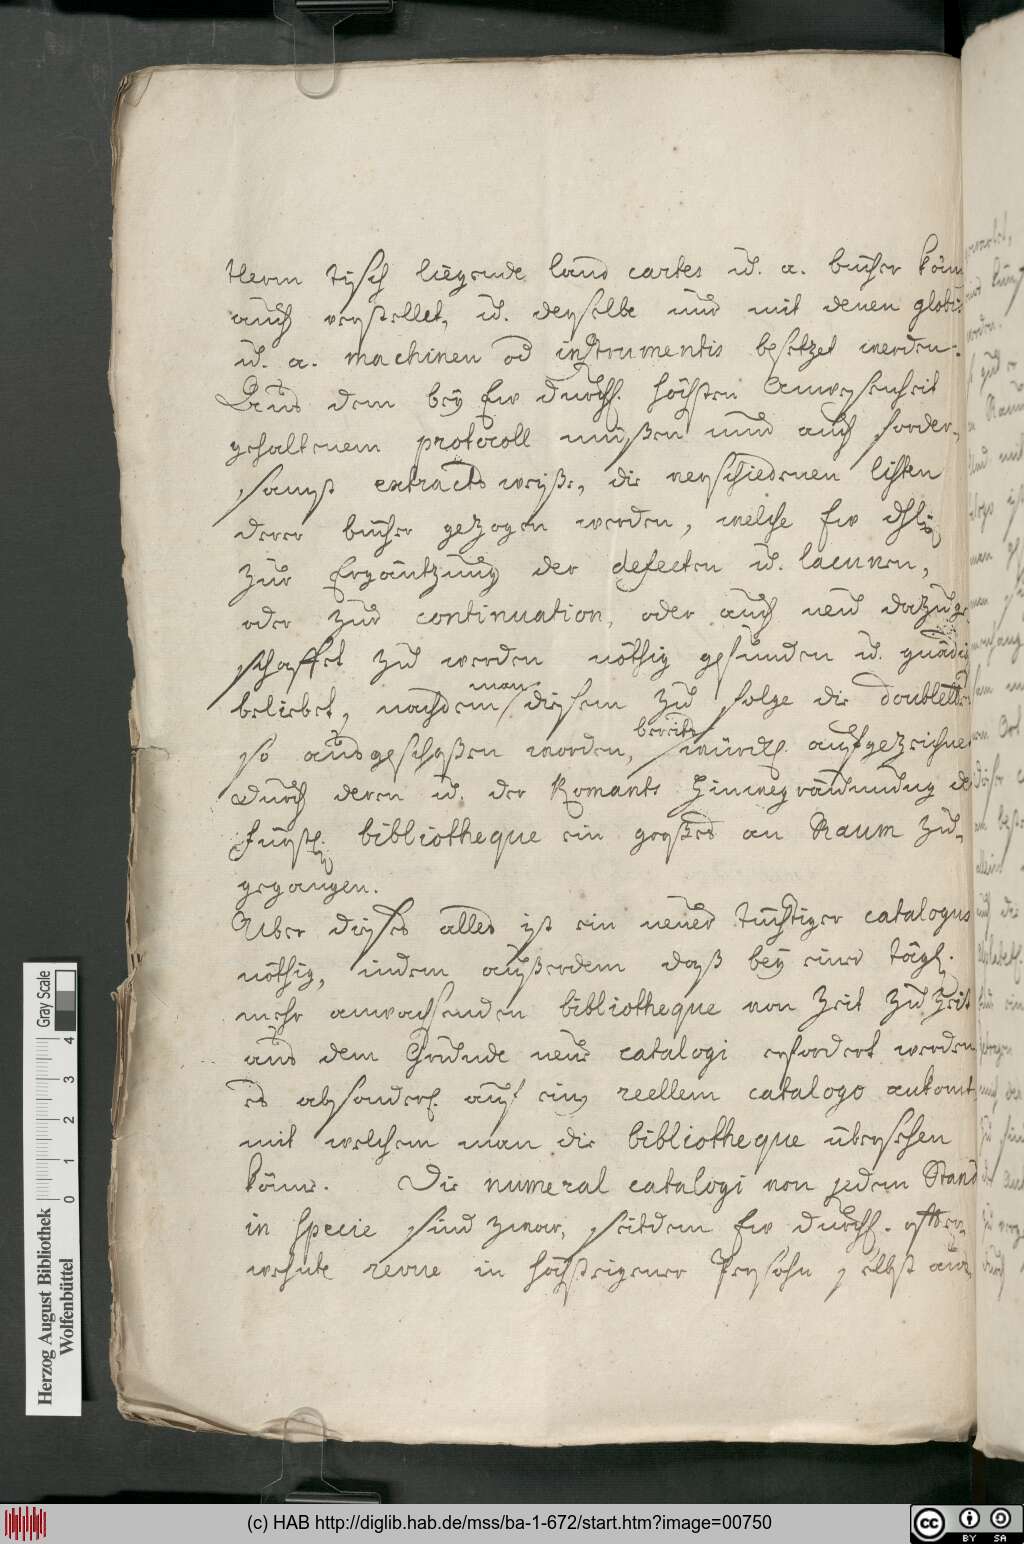 tterm tisch liegende land cartes u. a. bücher könn
auch verstellet, u. derselbe nur mit denen globis
u. a. machinen od instrumentis besetzet werden.
Aus dem bey Ew Durchl. höchsten Anwesenheit
gehaltenem protocoll müßen nun auch forder-
samst extractsweyße, die verschiedenen listen
derer bücher gezogen werden, welche Ew Dhl.
zur Ergäntzung der defecten u. lacunen,
oder zur continuation, oder auch neu dazuge
schaffet zu werden nöthig gefunden u. gnädig
beliebet, nachdem man diesem zu folge die doubletten
so ausgeschoßen worden, bereits würckl. aufgezeichnet
durch deren u. der Romants Hinwegräumung der
Fürstl. bibliotheque ein großes an Raum zu-
gegangen.
Uber dieses alles ist ein neuer tüchtiger catalogus
nöthig, indem außerdem daß bey einer tägl.
mehr anwachsenden bibliotheque von Zeit zu Zeit
aus dem Grunde neue catalogi erfordert werden
es absonderl. auf einen reellem catalogo ankomt,
mit welchem man die bibliotheque übersehen
könne. Die numeral catalogi von jedem Stand
in specie sind zwar, seitdem Ew Durchl. öfter-
wehnte revue in höchsteigener Persohn selbst
Herzog August Bibliothek
Wolfenbüttel
0 1 2 3 4
Gray Scale
(c) HAB http://diglib.hab.de/mss/ba-1-672/start.htm?image=00750
cc BY SA